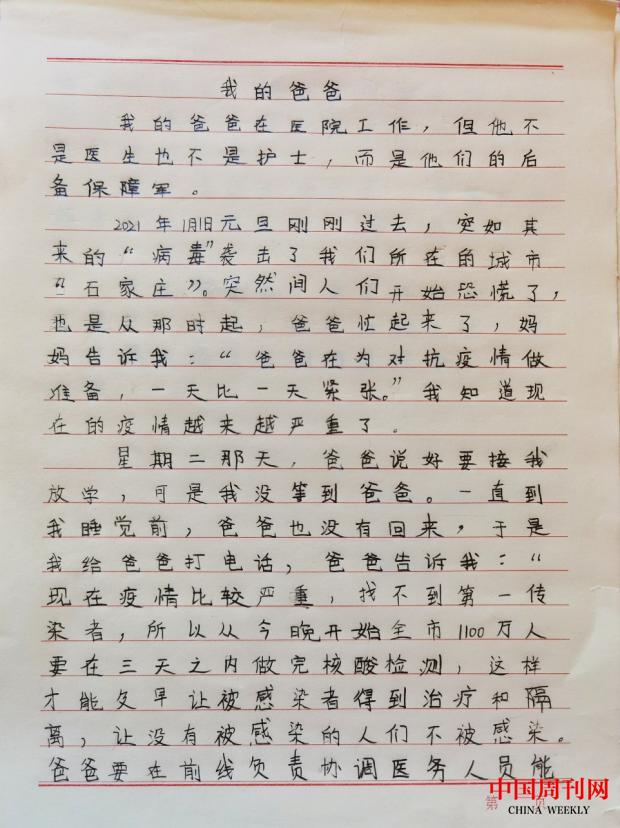 我的爸爸
我的爸爸在医院工作，但他不
是医生也不是护士，而是他们的后
备保障军。
2021年1月1日元旦刚刚过去，突如其
来的“病毒”袭击了我们所在的城市
“石家庄”。突然间人们开始恐慌了，
也是从那时起，爸爸忙起来了，妈
妈告诉我：“爸爸在为对抗疫情做
准备，一天比一天紧张。”我知道现
在的疫情越来越严重了。
星期二那天，爸爸说好要接我
放学，可是我没等到爸爸。一直到
我睡觉前，爸爸也没有回来，于是
我给爸爸打电话，爸爸告诉我：“
现在疫情比较严重，找不到第一传
染者，所以从今晚开始全市1100万人
要在三天之内做完核酸检测，这样
才能及早让被感染者得到治疗和隔
离，让没有被感染的人们不被感染。
爸爸要在前线负责协调医务人员能
第 页
中国周刊网
CHINA WEEKLY